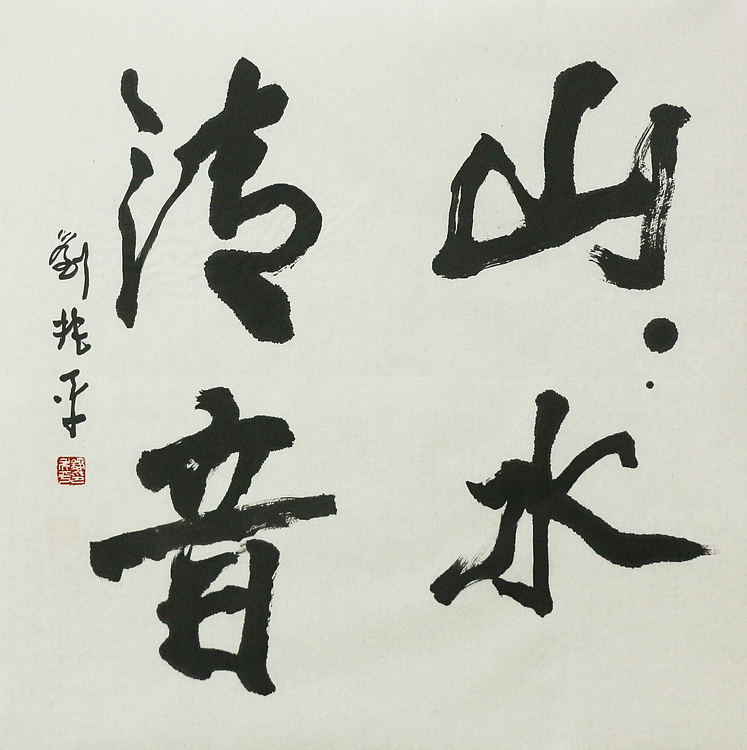 山水
清音
劉振平